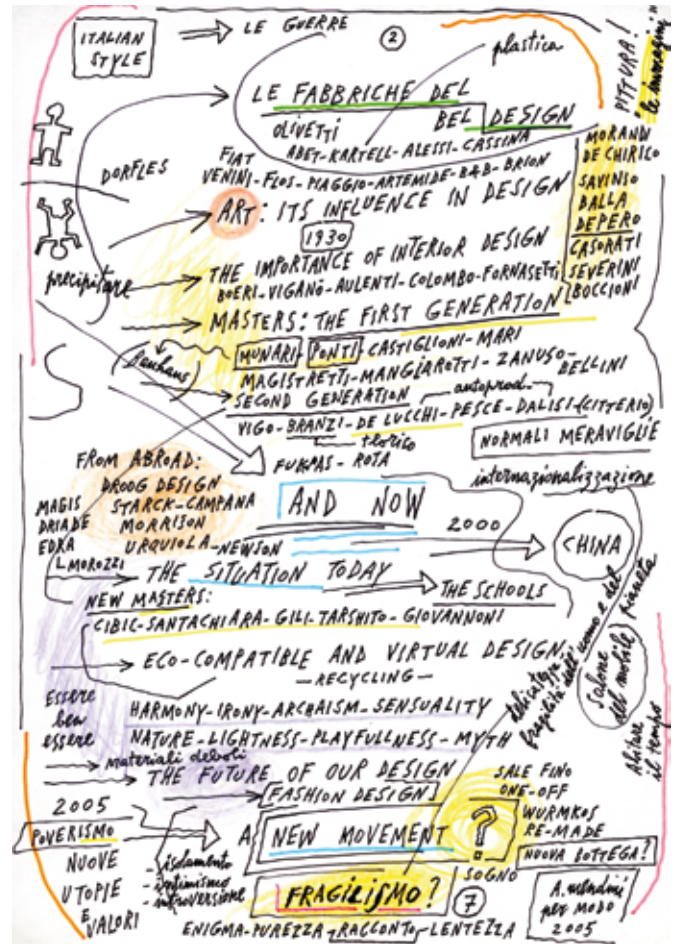 ITALIAN STYLE
LE GUERRE
2
plastica
PITTURA!
LE FABBRICHE DEL
BEL DESIGN
OLIVETTI
ABET-KARTELL-ALESSI-CASSINA
FIAT
VENINI-FLOS-PIAGGIO-ARTEMIDE-B&B-BRION
DORFLES
MORANDI
DE CHIRICO
SAVINIO
BALLA
DEPERO
CASORATI
SEVERINI
BOCCIONI
ART: ITS INFLUENCE IN DESIGN
1930
precipitare
THE IMPORTANCE OF INTERIOR DESIGN
BOERI-VIGANÒ-AULENTI-COLOMBO-FORNASETTI
MASTERS: THE FIRST GENERATION
(Bauhaus)
MUNARI-PONTI-CASTIGLIONI-MARI
MAGISTRETTI-MANGIAROTTI-ZANUSO-
BELLINI
SECOND GENERATION
autoprod.
VIGO-BRANZI-DE LUCCHI-PESCE-DALISI-(CITTERIO)
teorico
NORMALI MERAVIGLIE
FUKSAS-ROTA
internazionalizzazione
FROM ABROAD:
DROOG DESIGN
STARCK-CAMPANA
MORRISON
URQUIOLA-NEWSON
MAGIS
DRIADE
EDRA
MOROZZI
AND NOW
2000
CHINA
THE SITUATION TODAY
THE SCHOOLS
NEW MASTERS:
CIBIC-SANTACHIARA-GILI-TARSHITO-GIOVANNONI
ECO-COMPATIBLE AND VIRTUAL DESIGN
-RECYCLING-
fragilità dell'uomo e del pianeta
Salone del mobile
Abitare il tempo
Essere
ben
essere
HARMONY-IRONY-ARCHAISM-SENSUALITY
NATURE-LIGHTNESS-PLAYFULLNESS-MYTH
materiali deboli
THE FUTURE OF OUR DESIGN
FASHION DESIGN
SALE FINO
ONE-OFF
WURMKOS
RE-MADE
NUOVA BOTTEGA?
2005
POVERISMO
NUOVE
UTOPIE
E
VALORI
A NEW MOVEMENT ?
- isolamento
- intimismo
- introversione
SOGNO
FRAGILISMO?
7
A. mendini
per MODO
2005
ENIGMA-PUREZZA-RACCONTO-LENTEZZA